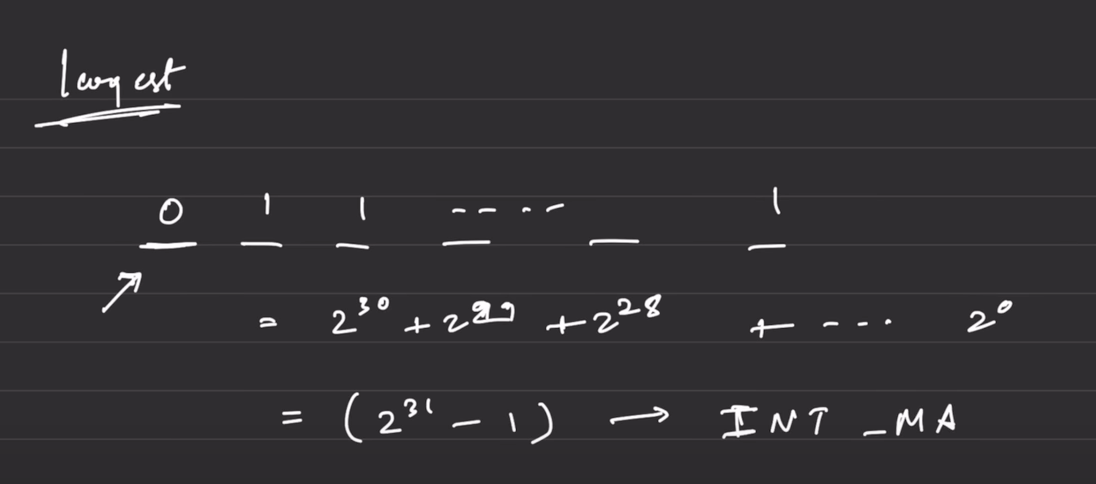 largest
0 1 1 ----- 1
= 2³⁰ + 2²⁹ + 2²⁸ + ---. 2⁰
= (2³¹ - 1) → INT_MA